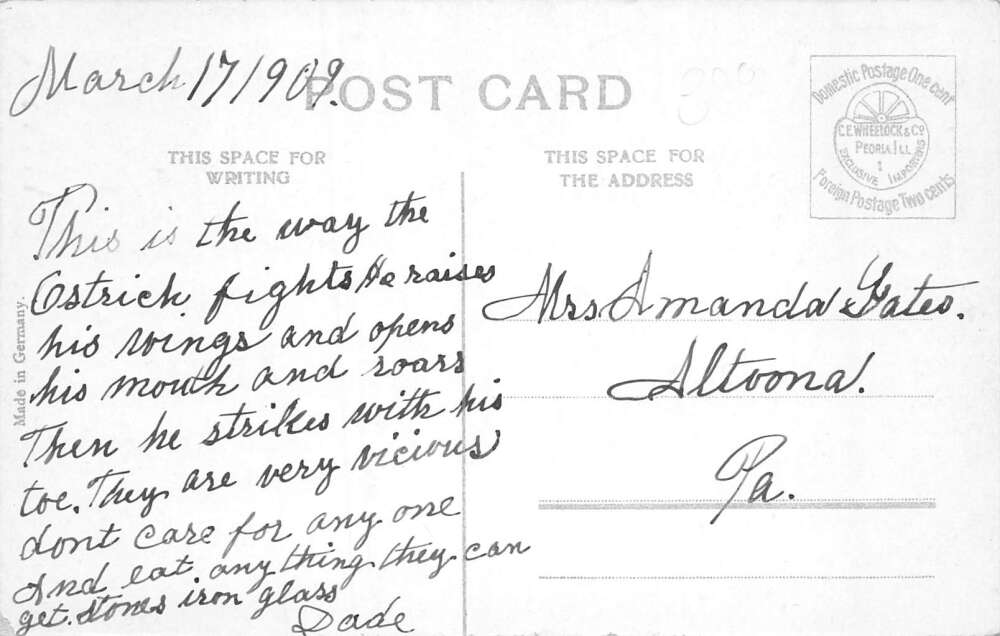 March 17 1909.
POST CARD
THIS SPACE FOR
WRITING
THIS SPACE FOR
THE ADDRESS
Domestic Postage One cent
C.E. WHEELOCK & CO
PEORIA ILL
EXCLUSIVE IMPORTERS
Foreign Postage Two cents
Made in Germany.
This is the way the
Ostrich fights He raises
his wings and opens
his mouth and roars
Then he strikes with his
toe. They are very vicious
dont care for any one
And eat any thing they can
get. stones iron glass
Dade
Mrs Amanda Yates.
Altoona.
Pa.